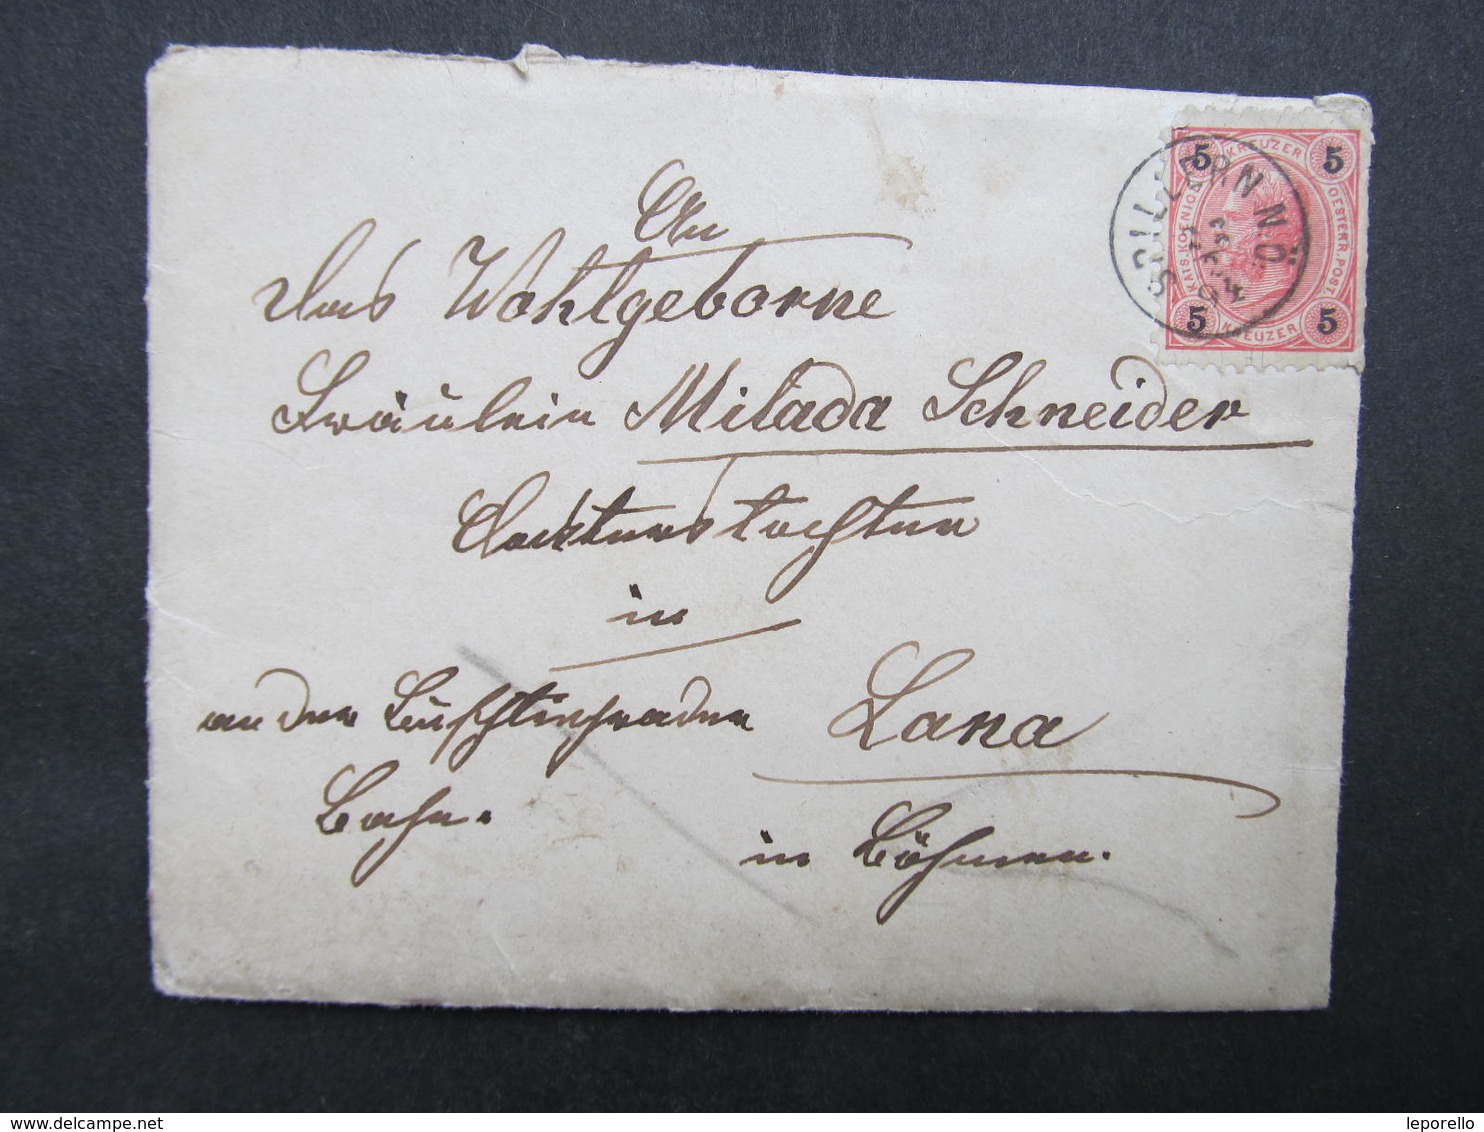 An
das Wohlgeborne
Fräulein Milada Schneider
Doctorstochter
in
an der Buschtiehrader Lana
Bahn.
in Böhmen.
5 KREUZER 5
KAIS. KOENIGL. OESTERR. POST.
5 KREUZER 5
SPILLERN NÖ
leporello